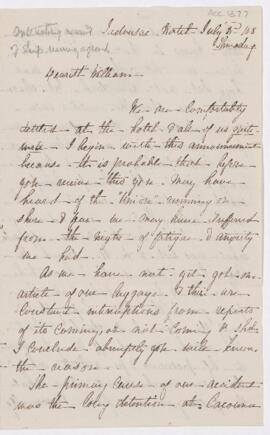 Acc 1877
Interesting account
of Ship running aground
Tadousac Hotel July 5th /68
Sunday
Dearest William
We are comfortably
settled at the hotel & all of us quite
well I begin with this announcement
because it is probable that before
you receive this you may have
heard of the Union running on
shore & fear we may have suffered
from the night of fatigue & anxiety
we had.
As we have not yet got one
article of our luggage & there are
constant interruptions from reports
of its coming or not coming & shd
I conclude abruptly you will know
the reason.
The primary cause of our accident
was the long detention at Cacouna